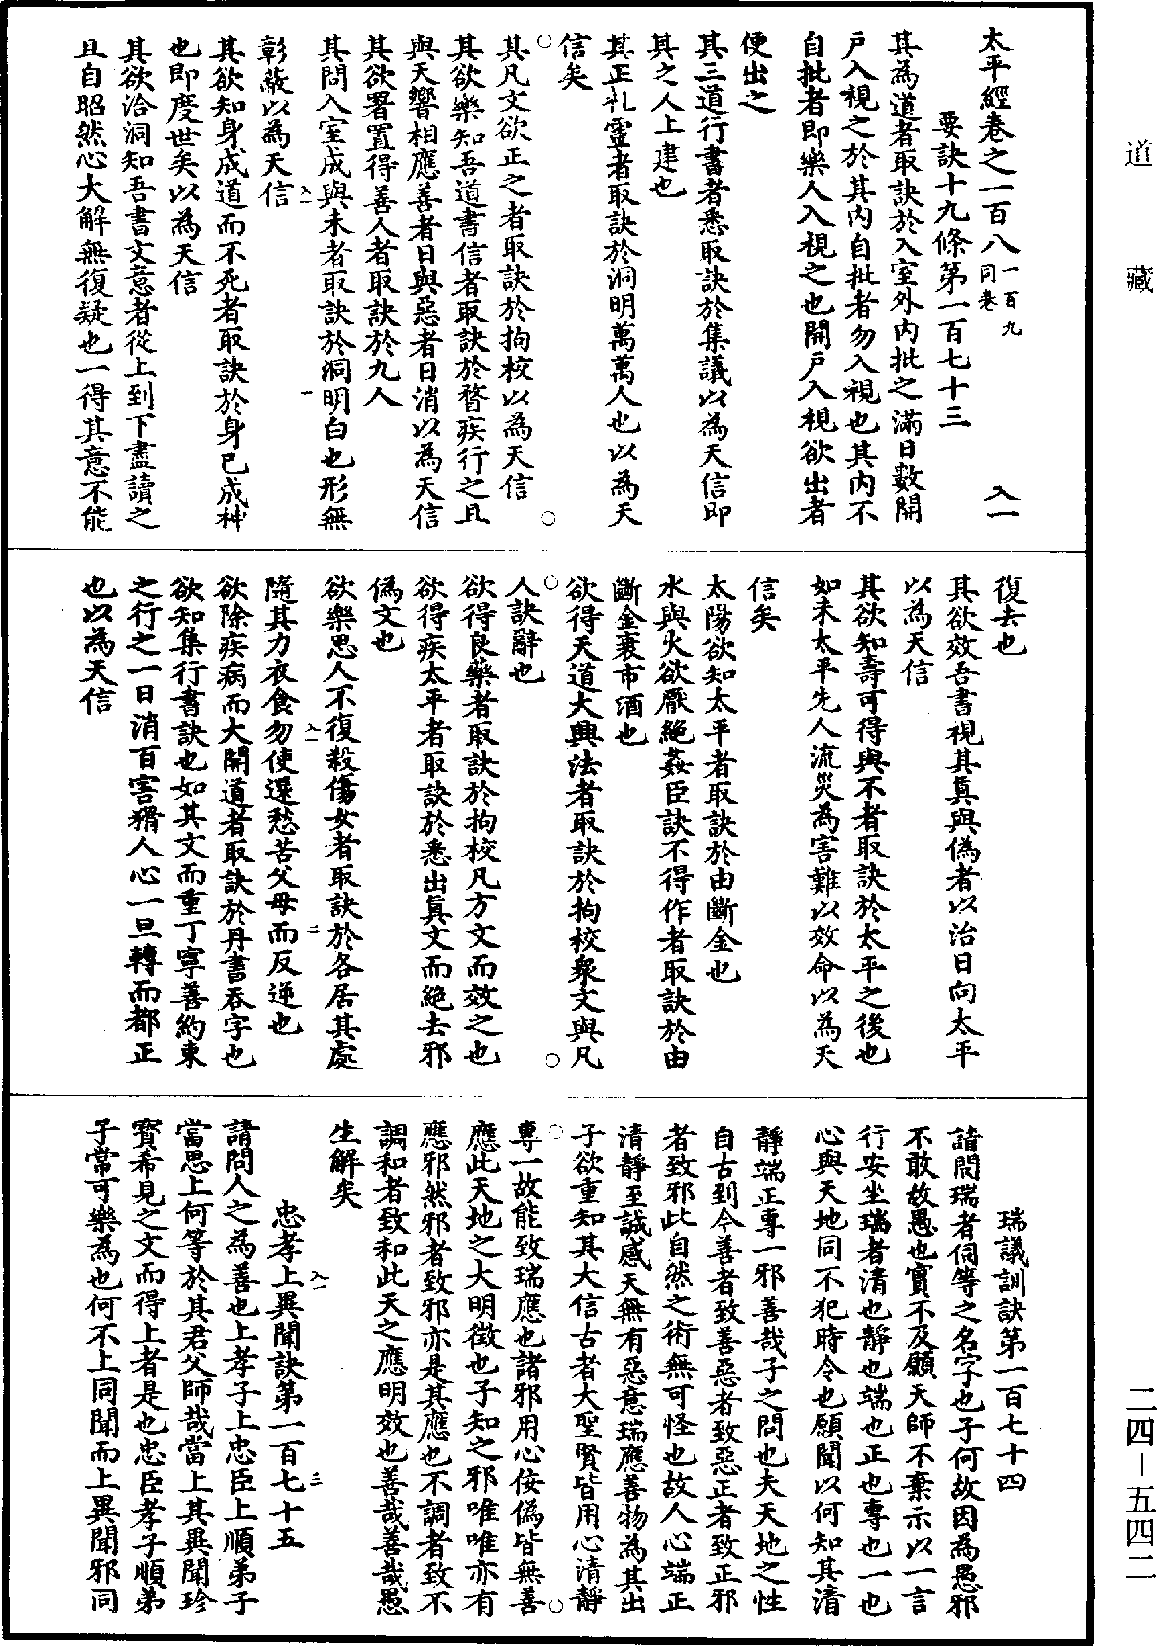 道藏
太平經卷之一百八一百九同卷　入一
要訣十九條第一百七十三
其為道者取訣於入室外內批之滿日數開
戶入視之於其內自批者勿入視也其內不
自批者即樂人入視之也開戶入視欲出者
便出之
其三道行書者悉取訣於集議以為天信即
其之人上建也
其正礼靈者取訣於洞明萬萬人也以為天
信矣
其凡文欲正之者取訣於拘校以為天信
其欲樂知吾道書信者取訣於瞀疾行之且
與天響相應善者日與惡者日消以為天信
其欲署置得善人者取訣於九人
其問入室成與未者取訣於洞明白也形無
彰蔽以為天信
其欲知身成道而不死者取訣於身已成神
也即度世矣以為天信
其欲洽洞知吾書文意者從上到下盡讀之
且自昭然心大解無復疑也一得其意不能
復去也
其欲效吾書視其真與偽者以治日向太平
以為天信
其欲知壽可得與不者取訣於太平之後也
如未太平先人流災為害難以效命以為天
信矣
太陽欲知太平者取訣於由斷金也
水與火欲厭絕姦臣訣不得作者取訣於由
斷金衰市酒也
欲得天道大興法者取訣於拘校衆文與凡
人訣辭也
欲得良藥者取訣於拘校凡方文而效之也
欲得疾太平者取訣於悉出真文而絕去邪
偽文也
欲樂思人不復殺傷女者取訣於各居其處
隨其力衣食勿使還愁苦父母而反逆也
欲除疾病而大開道者取訣於丹書吞字也
欲知集行書訣也如其文而重丁寧善約束
之行之一日消百害猾人心一旦轉而都正
也以為天信
瑞議訓訣第一百七十四
請問瑞者何等之名字也子何故因為愚邪
不敢故愚也實不及願天師不棄示以一言
行安坐瑞者清也靜也端也正也專也一也
心與天地同不犯時令也願聞以何知其清
靜端正專一邪善哉子之問也夫天地之性
自古到今善者致善惡者致惡正者致正邪
者致邪此自然之術無可怪也故人心端正
清靜至誠感天無有惡意瑞應善物為其出
子欲重知其大信古者大聖賢皆用心清靜
專一故能致瑞應也諸邪用心佞偽皆無善
應此天地之大明徵也子知之邪唯唯亦有
應邪然邪者致邪亦是其應也不調者致不
調和者致和此天之應明效也善哉善哉愚
生解矣
忠孝上異聞訣第一百七十五
請問人之為善也上孝子上忠臣上順弟子
當思上何等於其君父師哉當上其異聞珍
寶希見之文而得上者是也忠臣孝子順弟
子常可樂為也何不上同聞而上異聞邪同
二四－五四二